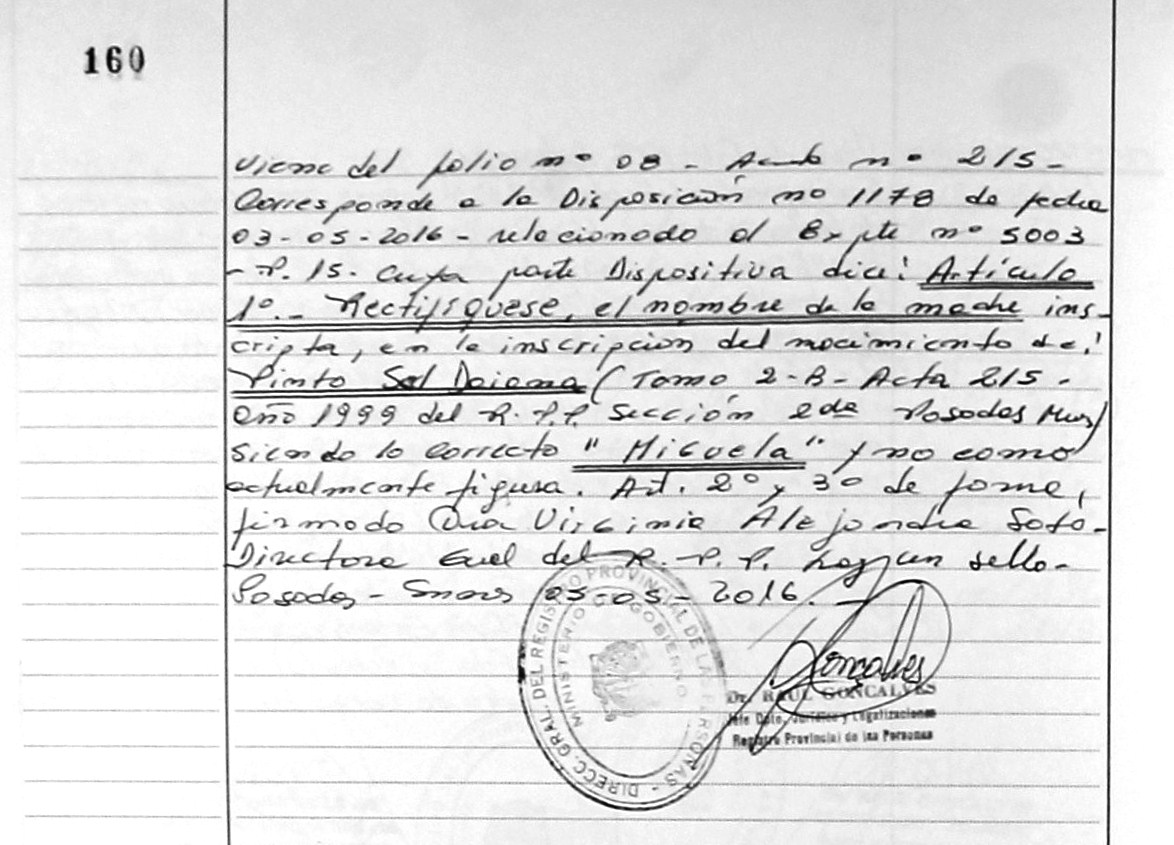 160
Viene del folio nº 08 - Acta nº 215 -
Corresponde a la Disposición nº 1178 de fecha
03-05-2016 - relacionado al Expte nº 5003
- P. 15. Cuya parte Dispositiva dice: Artículo
1º.- Rectifíquese, el nombre de la madre ins-
cripta, en la inscripción del nacimiento de:
Pinto Sol Daiana (Tomo 2-B- Acta 215 -
año 1999 del R.P.P. Sección 2da Posadas Mnes)
siendo lo correcto "Miguela" y no como
actualmente figura. Art. 2º y 3º de forma,
firmado Dra Virginia Alejandra Soto-
Directora Gral del R.P.P. hay un sello-
Posadas - Mnes 05-05-2016.-
DIRECC. GRAL. DEL REGISTRO PROVINCIAL DE LAS PERSONAS -
MINISTERIO DE GOBIERNO
Goncalves
Dr. RAUL GONCALVES
Jefe Dpto. Jurídico y Legalizaciones
Registro Provincial de las Personas